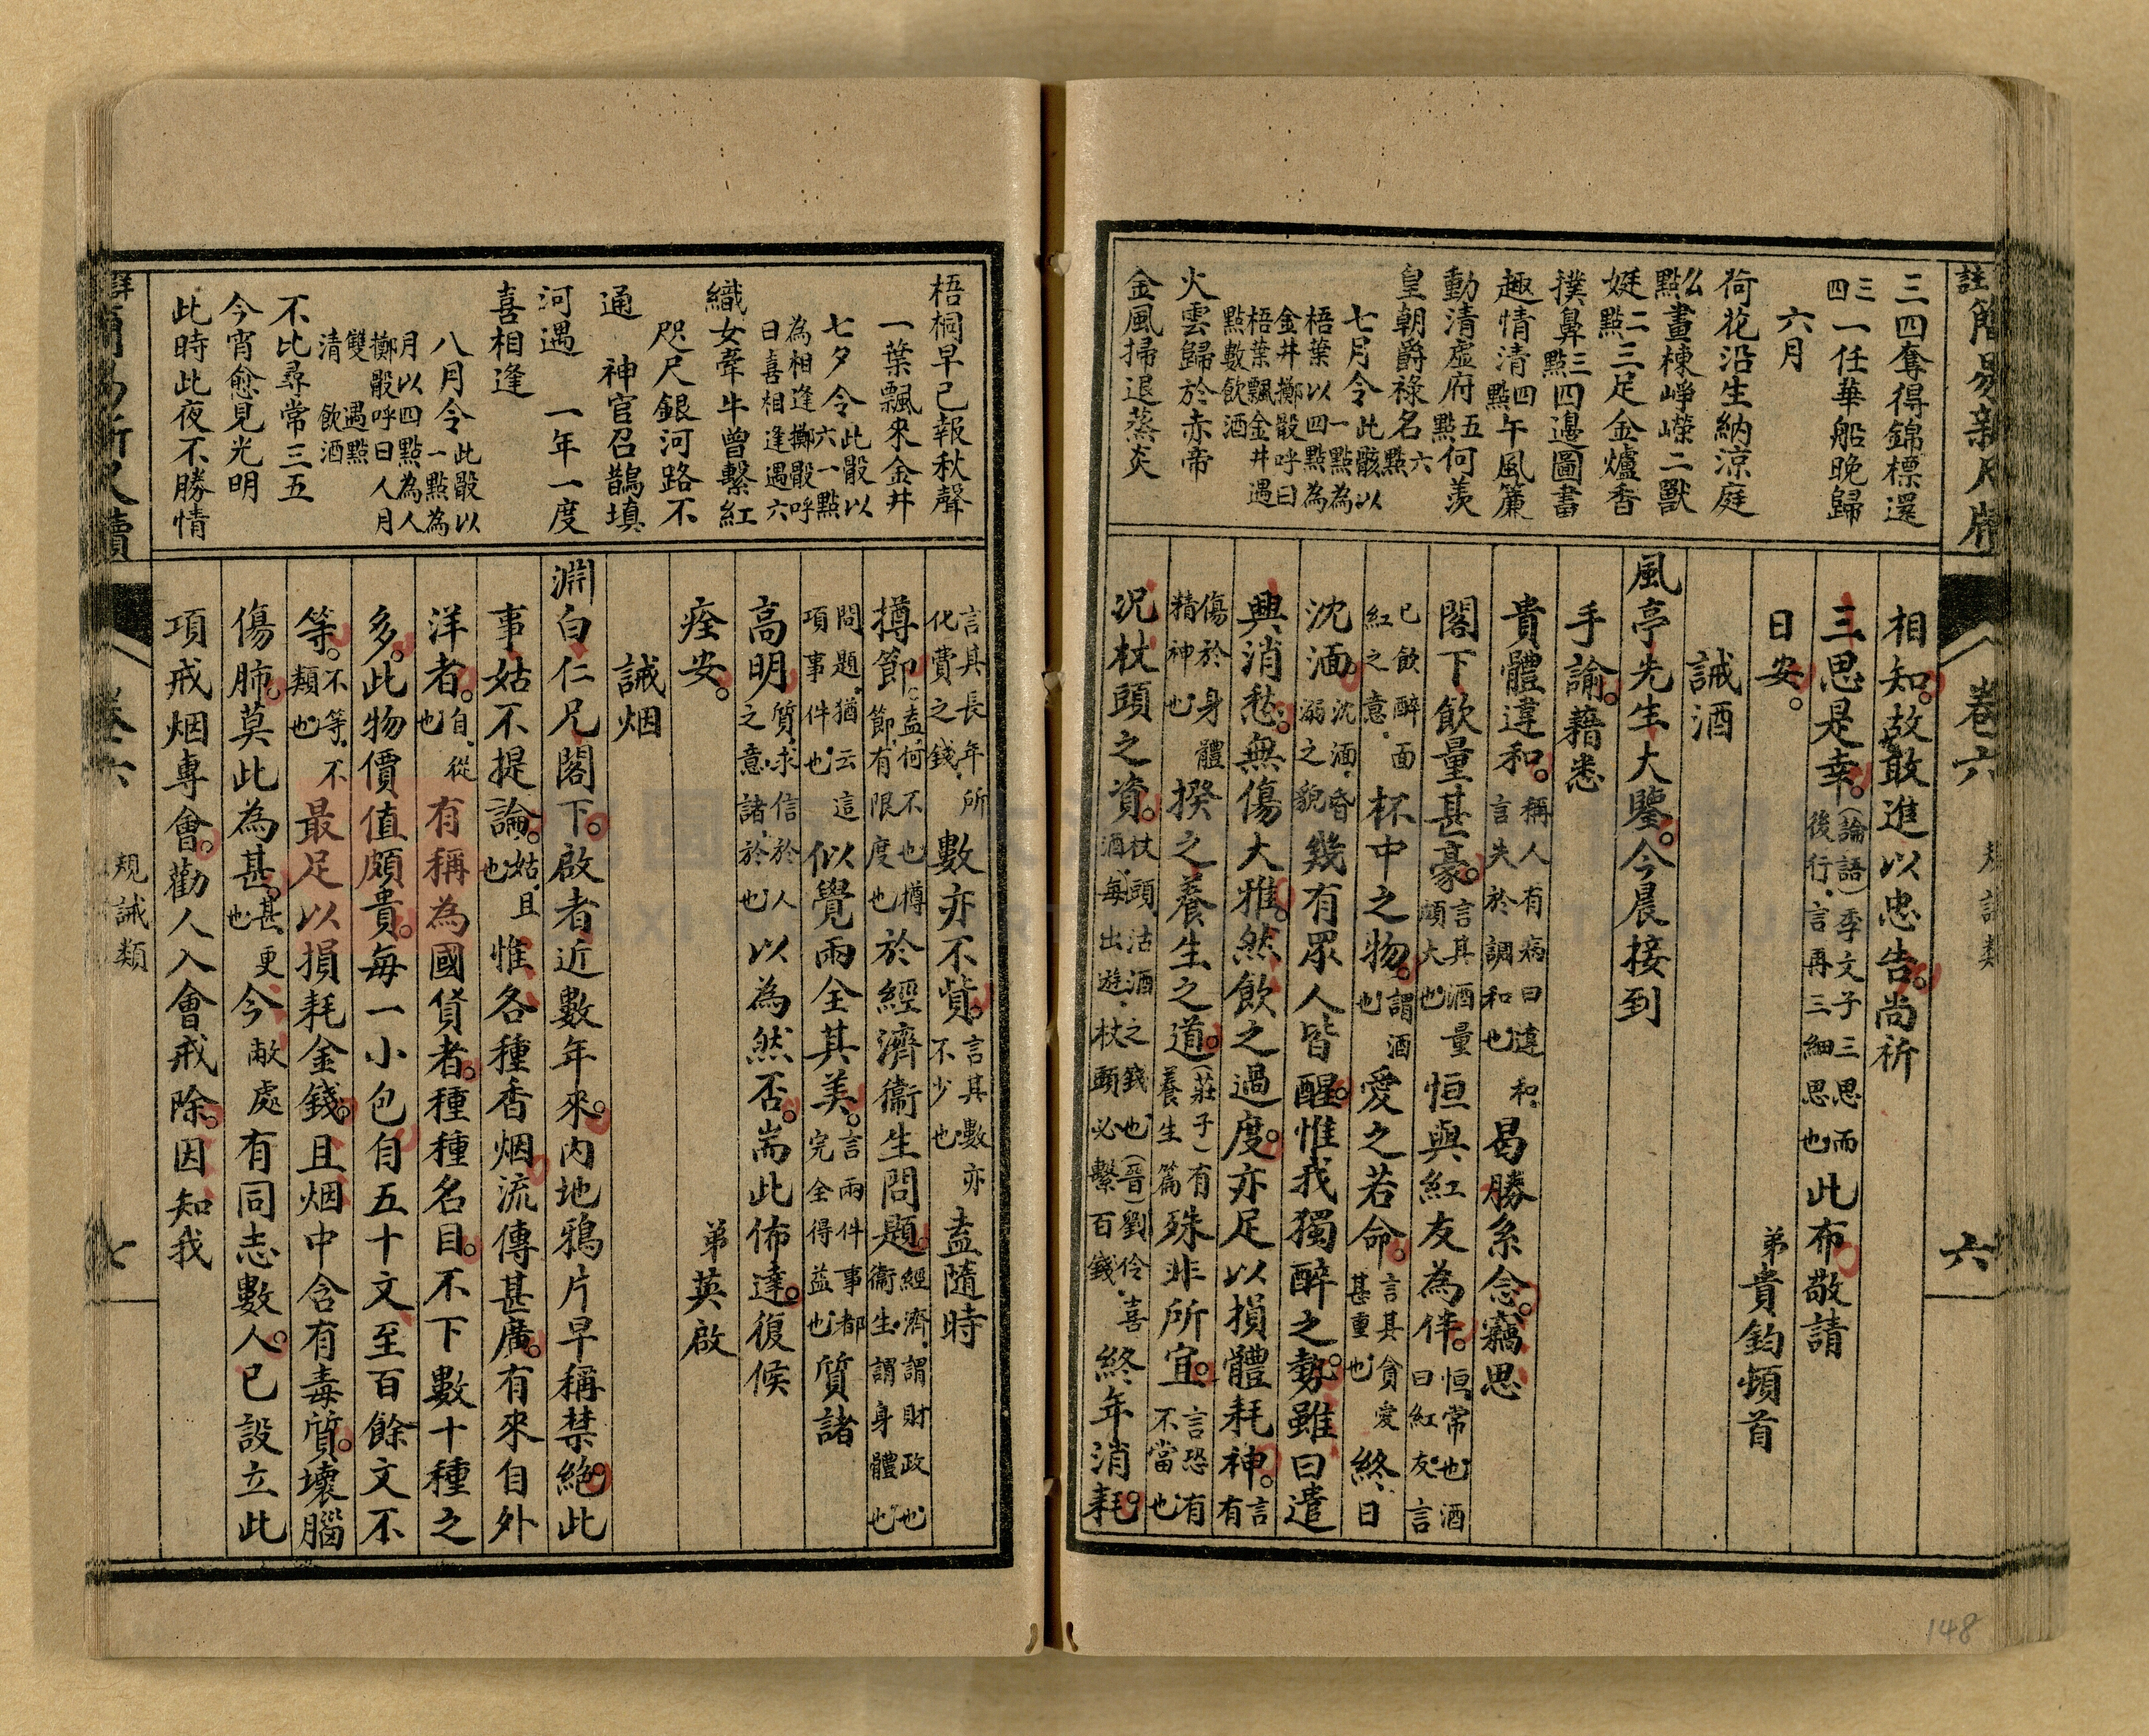 註簡易新尺牘
卷六
規誡類
六
三四奪得錦標還
三四一任華船晚歸
六月
荷花沿生納涼庭
么點畫棟崢嶸二獸
娗二點三足金爐香
撲鼻三點四邊圖書
趣情清四點午風簾
動清虛府五點何羨
皇朝爵祿名六點
七月令此骰以一點為梧葉以四點為金井擲骰呼曰梧葉飄金井遇點數飲酒
火雲歸於赤帝
金風掃退蒸炎
相知。故敢進以忠告。尚祈
三思是幸。(論語)季文子三思而後行,言再三細思也此布敬請
日安。
弟貴鈞頓首
誡酒
風亭先生大鑒。今晨接到
手諭。藉悉
貴體違和。稱人有病曰違和,言失於調和也曷勝系念。竊思
閣下飲量甚豪。言其酒量頗大也恒與紅友為伴。恒,常也,酒曰紅友,言
已飲醉面紅之意。杯中之物。謂酒也愛之若命。言其貪愛甚重也終日
沈湎。沈湎,昏溺之貌幾有眾人皆醒。惟我獨醉之勢。雖曰遣
興消愁。無傷大雅。然飲之過度。亦足以損體耗神。言有
傷於身體精神也揆之養生之道。(莊子)有養生篇殊非所宜。言恐有不當也
況杖頭之資。杖頭,沽酒之錢也,(晉)劉伶喜酒,每出遊,杖頭必繫百錢。終年消耗。
梧桐早已報秋聲
一葉飄來金井
七夕令此骰以六一點為相逢擲骰呼曰喜相逢遇六
織女牽牛曾繫紅
咫尺銀河路不
通 神官召鵲填
河遇 一年一度
喜相逢
八月令此骰以一點為月以四點為人擲骰呼曰人月雙清 遇點飲酒
不比尋常三五
今宵愈見光明
此時此夜不勝情
言其長年,所化費之錢,數亦不貲。言其數亦不少也盍隨時
撙節。盍,何不也,撙節,有限度也於經濟衞生問題。經濟,謂財政也,衞生,謂身體也
問題,猶云這項事件也,似覺兩全其美。言兩件事都完全得益也質諸
高明。質,求信於人之意,諸,於也以為然否。耑此佈達。復候
痊安。
弟英啟
誡烟
淵白仁兄閣下。啟者近數年來。內地鴉片早稱禁絕。此
事姑不提論。姑,且也惟各種香烟流傳甚廣。有來自外
洋者。自,從也有稱為國貨者。種種名目。不下數十種之
多。此物價值頗貴。每一小包自五十文至百餘文不
等。不等,不類也最足以損耗金錢。且烟中含有毒質。壞腦
傷肺。莫此為甚。甚,更也今敝處有同志數人。已設立此
項戒烟專會。勸人入會戒除。因知我
詳簡易新尺牘
卷六
規誡類
七
148